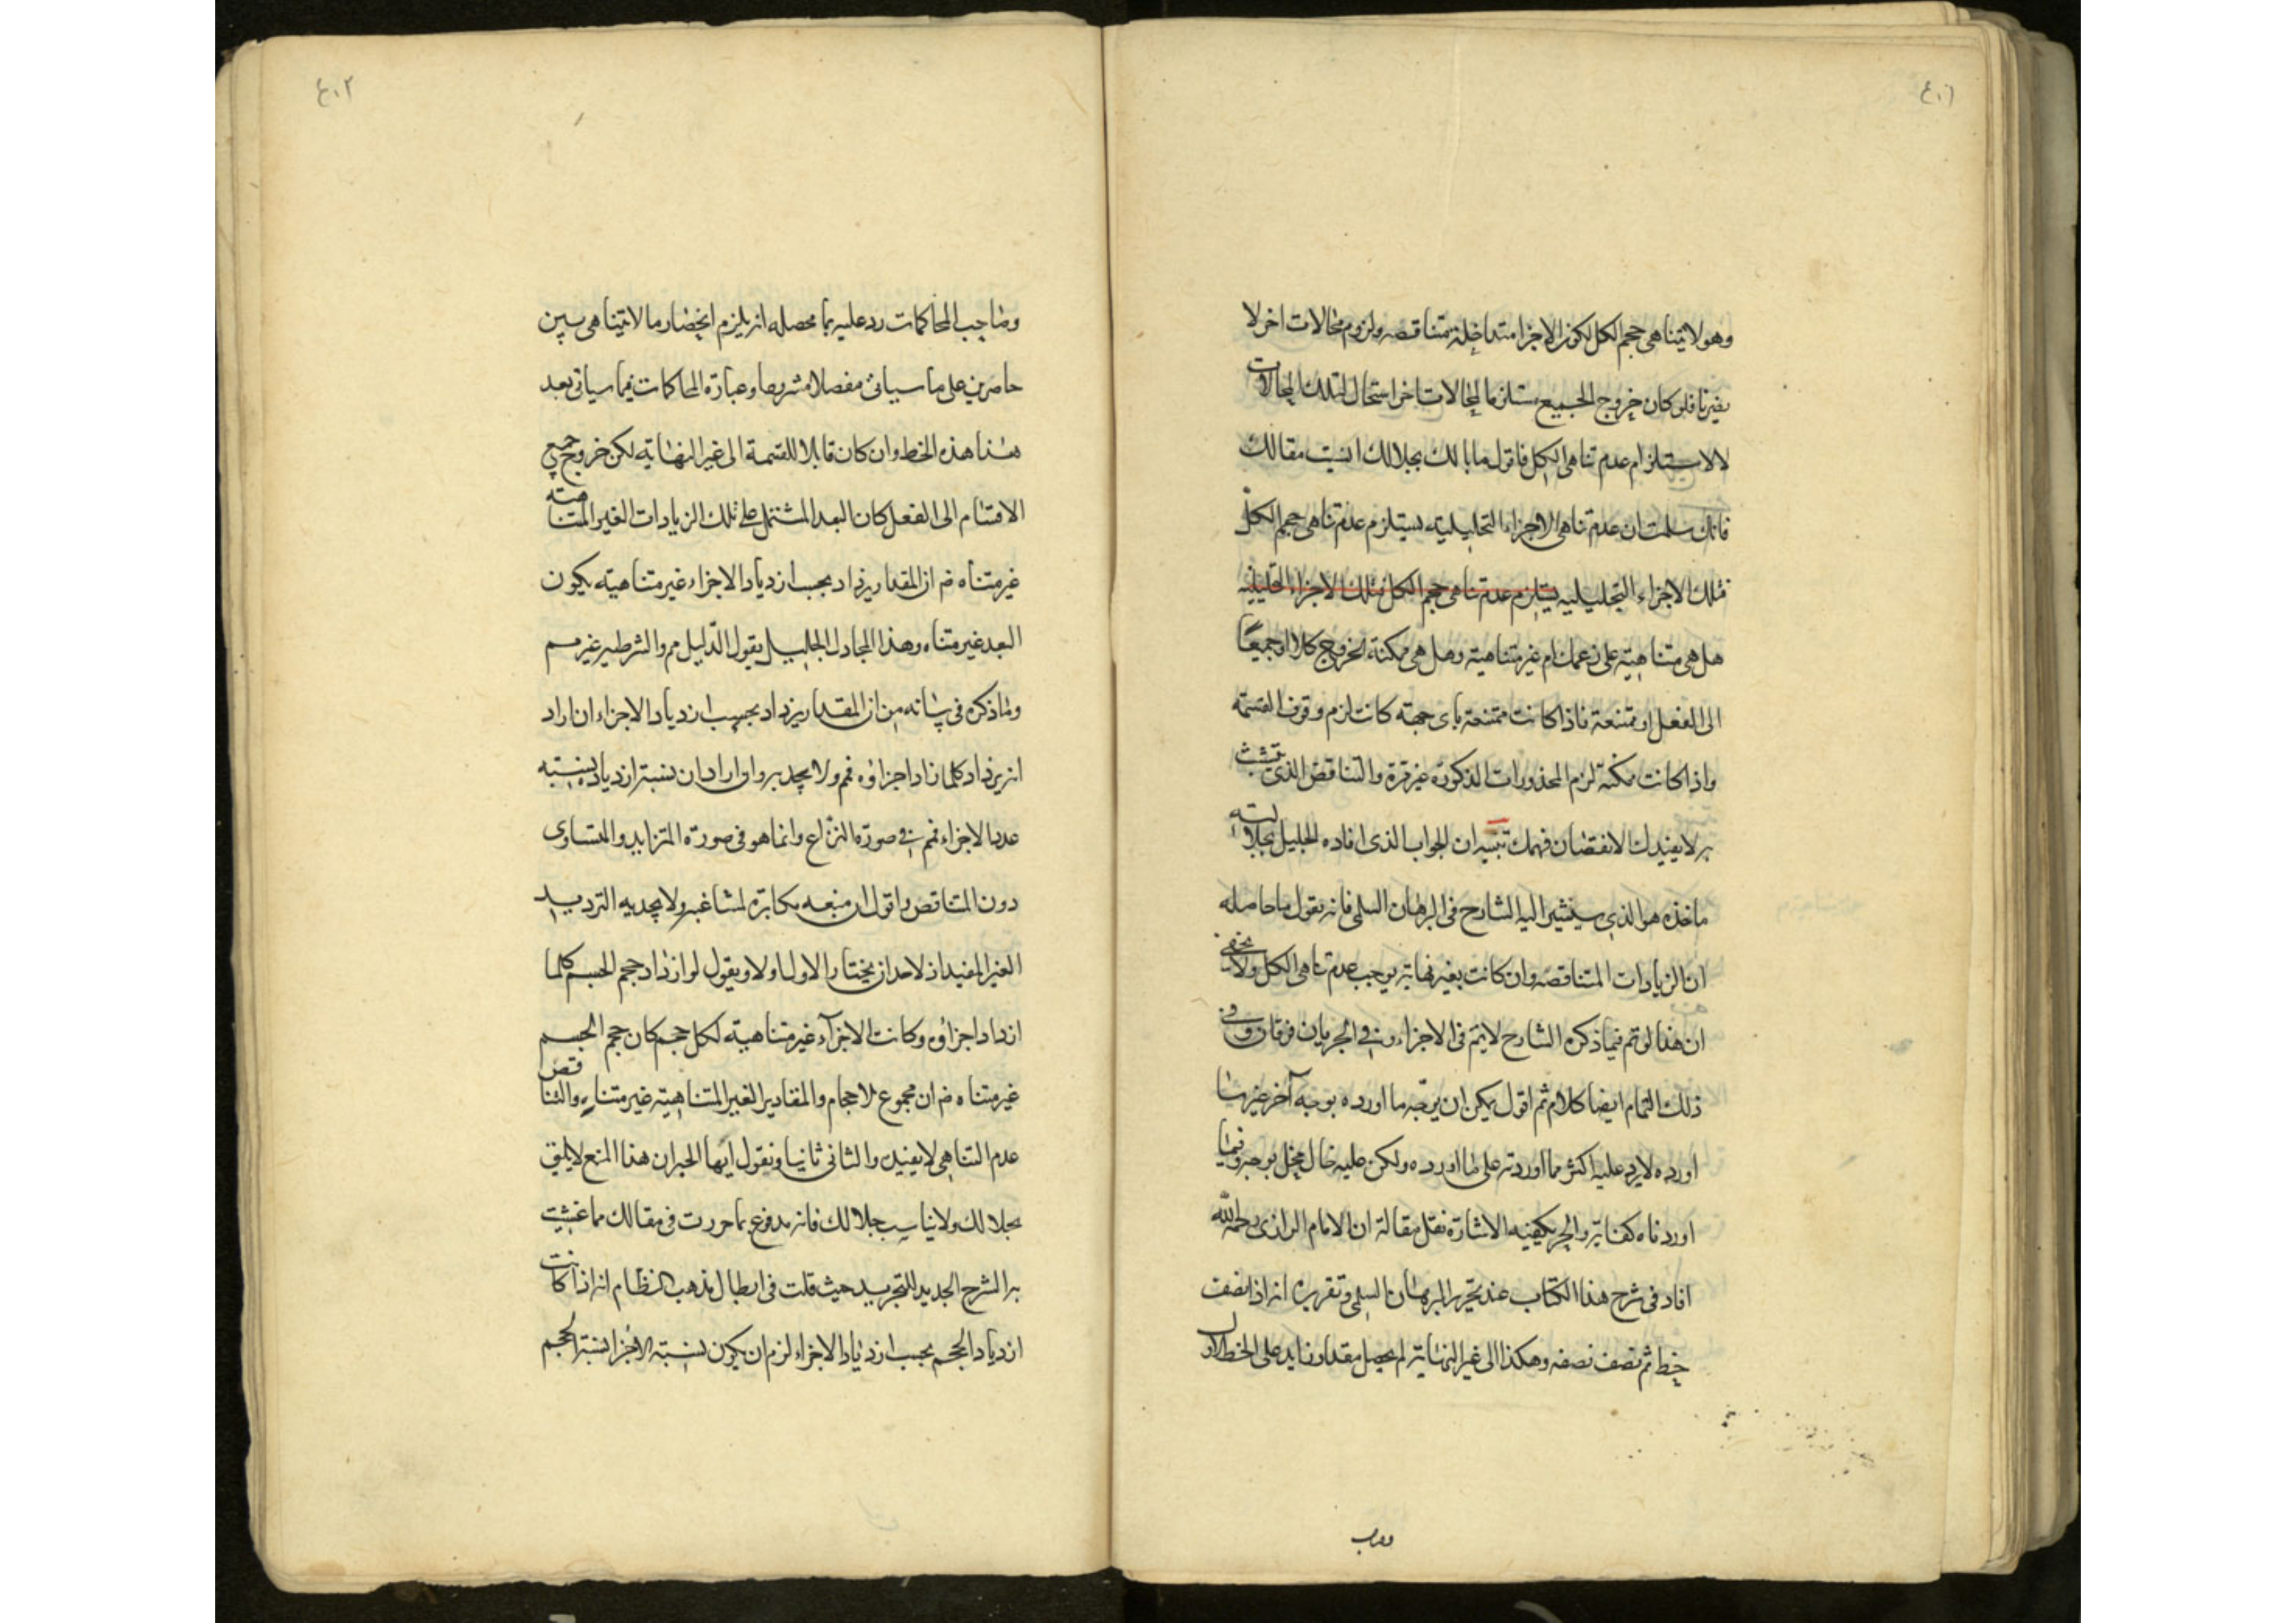 ٤٠١
وهو لا تناهى حجم الكل لكون الاجزا متداخلة متناقصه ولزوم محالات اخر لا
يضرنا فلو كان خروج الجميع مستلزما لمحالات اخر استحال لتلك المحالات
لا لاستلزام عدم تناهى الكل فاقول ما بالك بجلالك انسيت مقالك
فانك سلمت ان عدم تناهى الاجزاء التحليلية يستلزم عدم تناهى حجم الكل
فتلك الاجزاء التحليليه يستلزم عدم تناهى حجم الكل فتلك الاجزاء التحليليه
هل هى متناهية على زعمك ام غير متناهية وهل هى ممكنة الخروج كلا او جميعًا
الى الفعل او ممتنعة فاذا كانت ممتنعة باى جهة كانت لزم وقوف القسمة
واذا كانت ممكنة لزم المحذورات المذكورة غير مرة والتناقض الذى تتشبث
به لا يفيدك الا نقصان فهمك تنبيه ان الجواب الذى افاده الجليل بجلالته
ماخذه هو الذى سيشير اليه الشارح فى البرهان السلمى فانه يقول ما حاصله
ان الزيادات المتناقصه وان كانت بغير نهاية يوجب عدم تناهى الكل ولا يخفى
ان هذا لو تم فيما ذكره الشارح لا يتم فى الاجزاء وفى الجريان فرقان وفى
ذلك التمام ايضا كلام ثم اقول يمكن ان يوجّه ما اورده بوجه آخر غير ما
اورده لا يرد عليه اكثر مما اوردته على ما اورده ولكن عليه خال مخل بوجه وفيما
اوردناه كفاية والحر يكفيه الاشارة نقل مقالة ان الامام الرازى رحمه الله
افاد فى شرح هذا الكتاب عند تحرير البرهان السلمى وتقريره انه اذا نصف
خط ثم نصف نصفه وهكذا الى غير النهاية لم يحصل مقدار زايد على الخط الاول
وصاحب
٤٠٢
وصاحب المحاكمات رد عليه بما محصله انه يلزم انحصار ما لا يتناهى بين
حاصرين على ما سياتى مفصلا مشروحا وعبارة المحاكمات فيما سياتى بعد
هذا هذه الخط وان كان قابلا للقسمة الى غير النهاية لكن خروج جميع
الاقسام الى الفعل كان البعد المشتمل على تلك الزيادات الغير المتناهية
غير متناه ضم ان المقدار يزداد بحسب ازدياد الاجزاء غير متناهية يكون
البعد غير متناه وهذا المجادل الجليل يقول الدّليل مم والشرطيه غير مسم
وما ذكره فى بيانه من ان المقدار يزداد بحسب ازدياد الاجزاء ان اراد
انه يزداد كلما زاد اجزاؤه فم ولا يجديه وان اراد ان نسبة ازدياده بنسبة
عدد الاجزاء فم فى صورة النزاع وانما هو فى صورة المتزايد والمتساوى
دون المتناقص واقول ان منعه مكابرة لمشاغبه ولا يجديه الترديد
الغير المفيد اذ لاحد ان يختار الاول اولا ويقول لو ازداد حجم الجسم كلما
ازداد اجزاؤه وكانت الاجزآء غير متناهية لكل حجم كان حجم الجسم
غير متناه ضم ان مجموع الاحجام والمقادير الغير المتناهية غير متناه والتناقص
عدم التناهى لا يفيد والثانى ثانيا ونقول ايها الحبر ان هذا المنع لا يليق
بجلالك ولا يناسب جلالك فانه مدفوع بما حررت فى مقالك مما غشيت
به الشرح الجديد للتجريد حيث قلت فى ابطال مذهب النظام انه اذا كانت
ازدياد الحجم بحسب ازدياد الاجزاء لزم ان يكون نسبة الاجزا نسبة الحجم